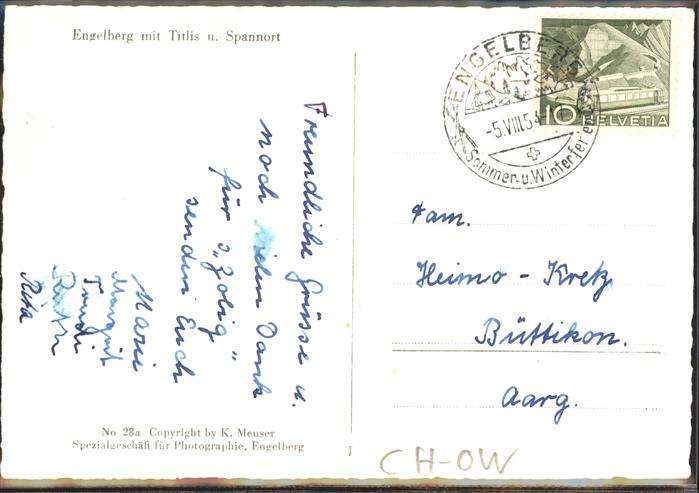 Engelberg mit Titlis u. Spannort
Freundliche Grüsse u.
noch vielen Dank
für's „Zobig"
senden Euch
Marie
Margrit
Trudi
Ruth
Rita
No 28a Copyright by K. Meuser
Spezialgeschäft für Photographie, Engelberg
ENGELBERG
-5.VIII.54
Sommer- u. Winterferien
10 HELVETIA
Fam.
Heimo - Kretz
Büttikon.
Aarg.
CH-OW